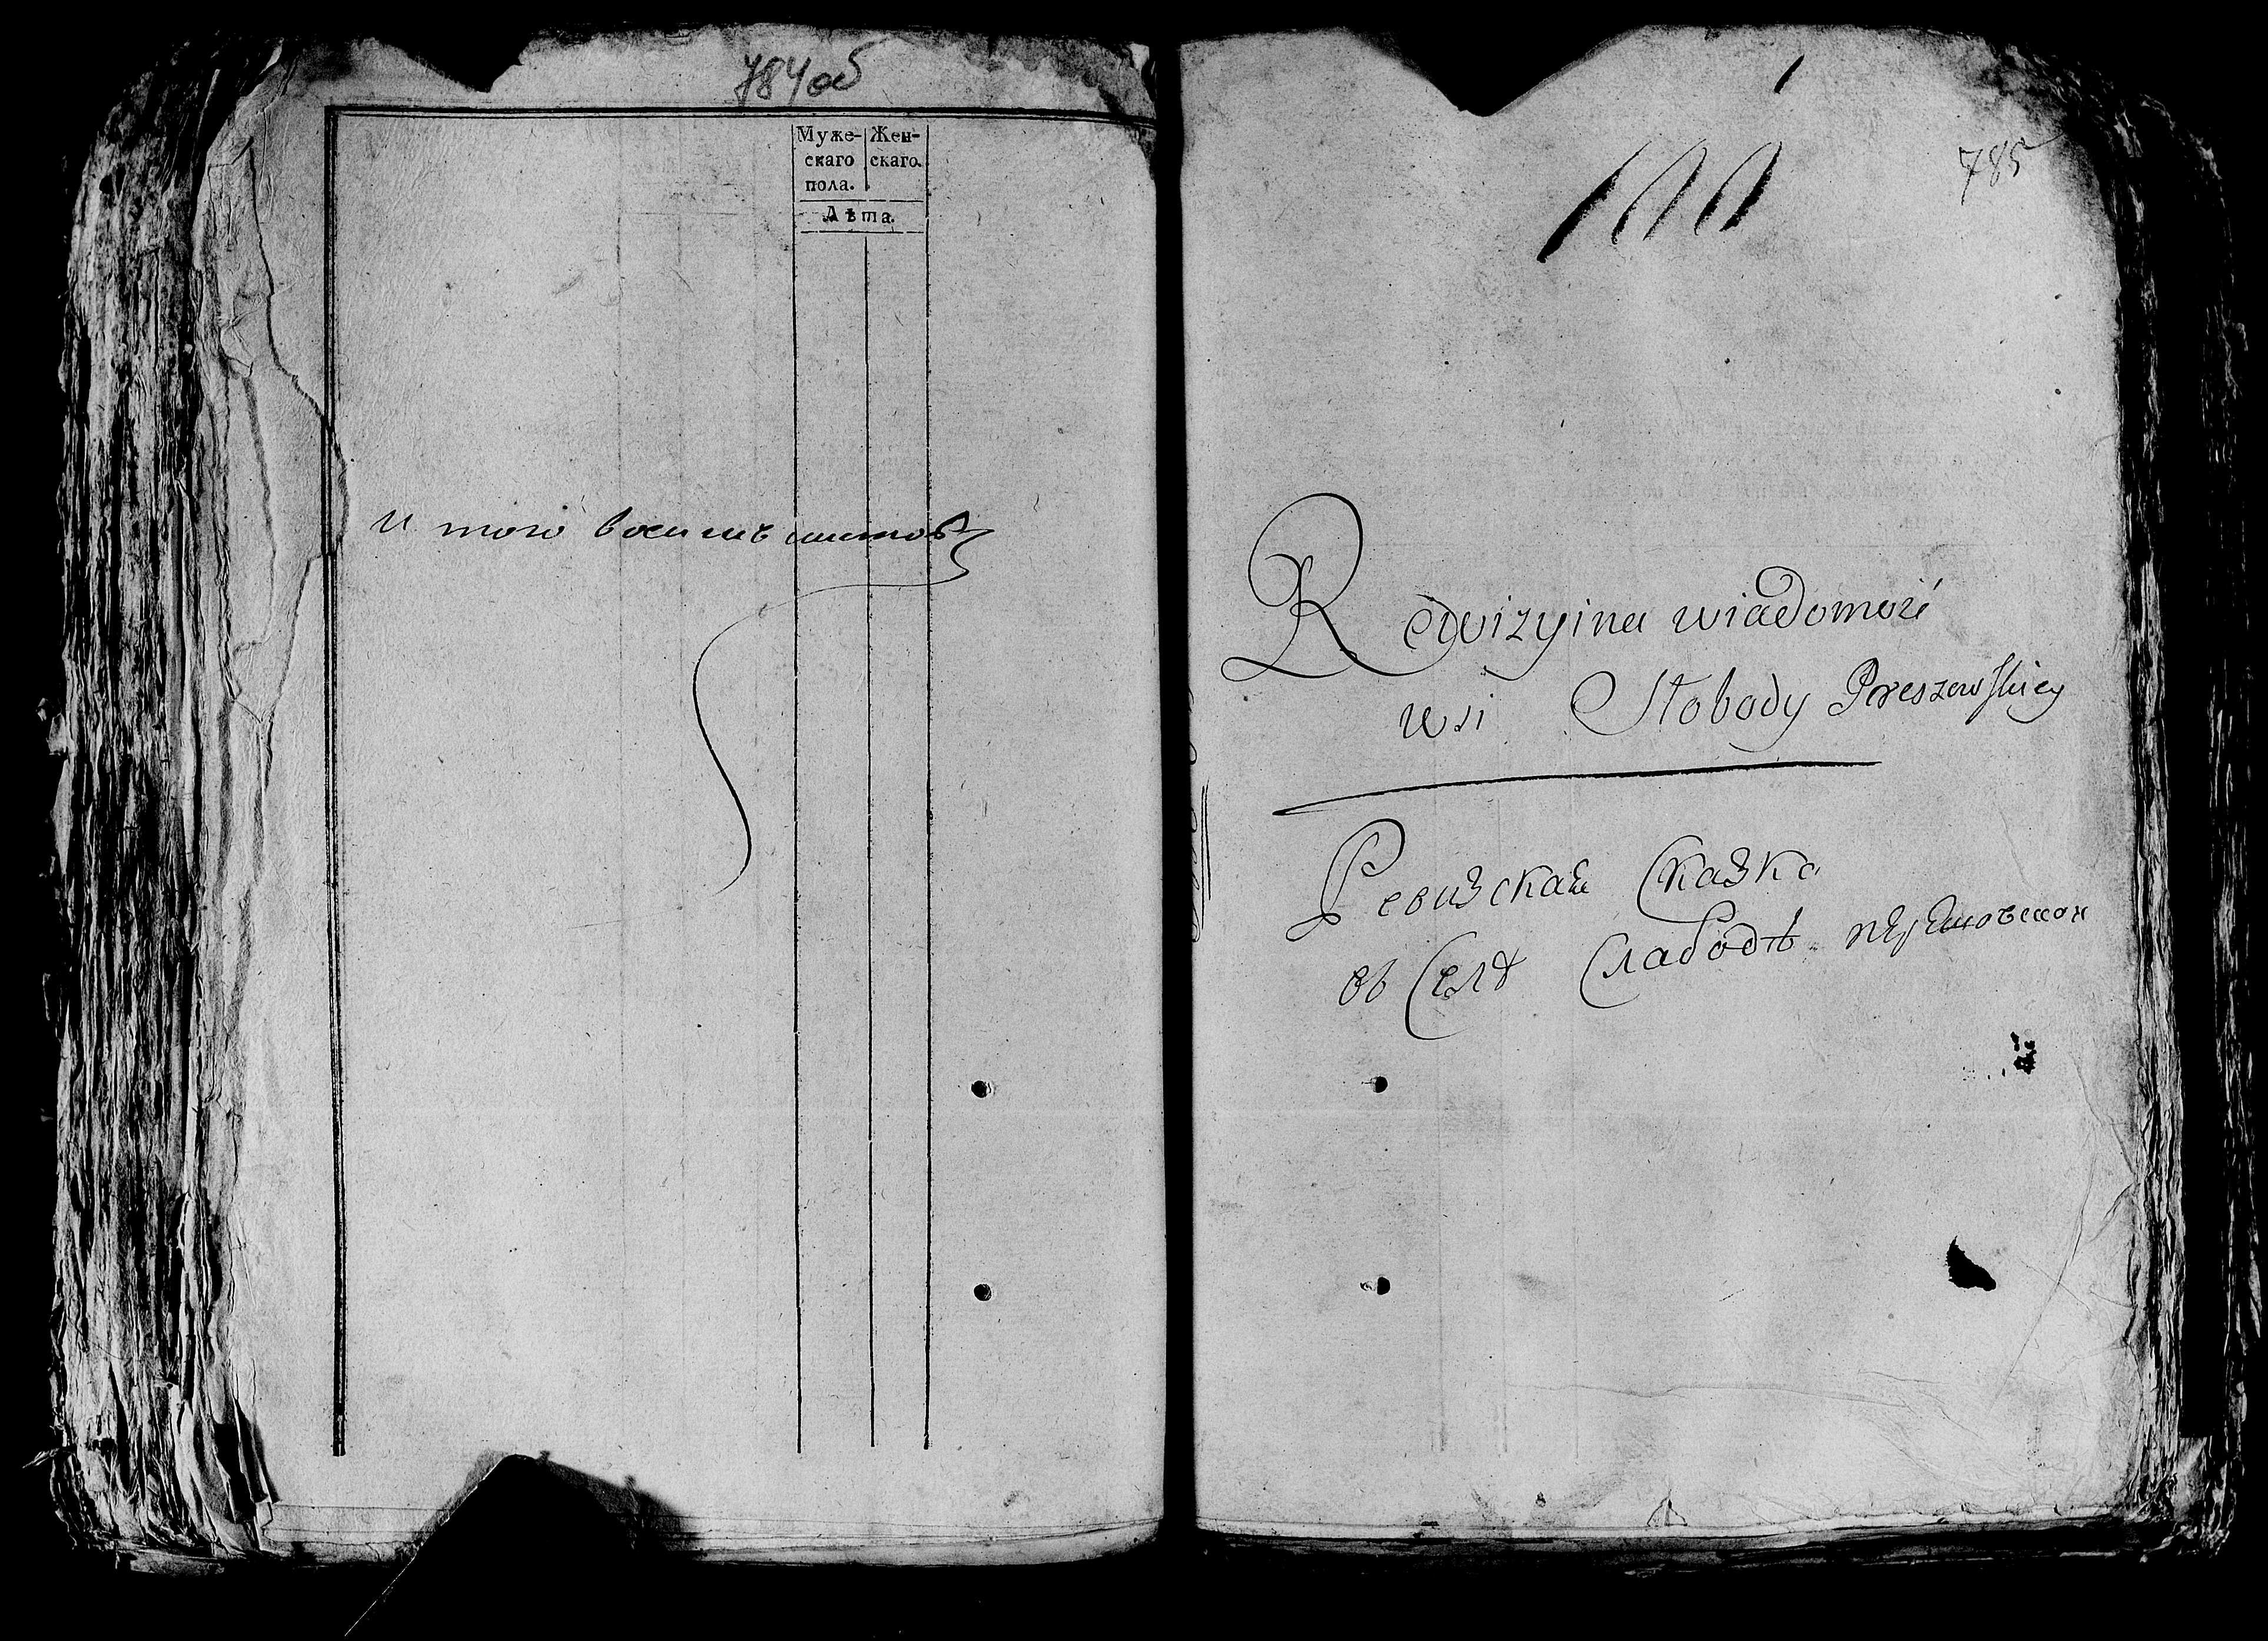 784об
Муже-
скаго
пола.
Жен-
скаго.
Лѣта.
И того восимъ листов
785
Rewizyina wiadomość
wsi Słobody Pereszewskiey
Ревизская Сказка
въ Селѣ Слабодѣ